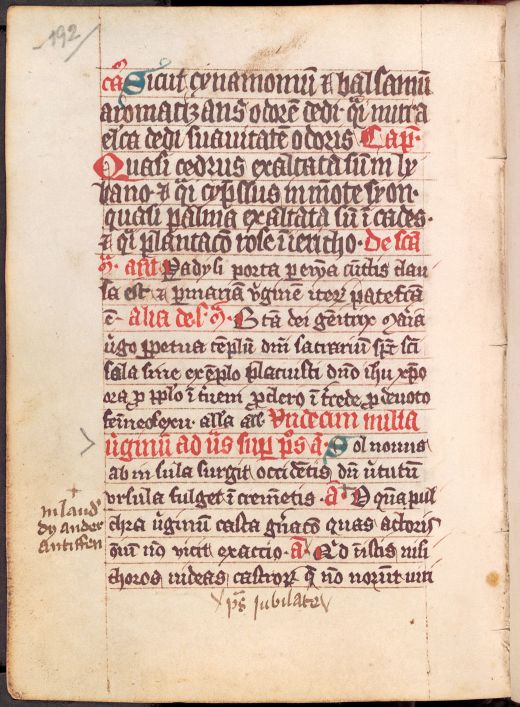 192
ca Sicut cynamomū & balsamū
aromatizans odorē dedi q̄i mirra
elca dedi suavitatē odoris Cap̄.
Quasi cedrus exaltata sū in ly
bano & q̄i cypssus in mōte syon.
quasi palma exaltata sū ī cades.
& q̄i plantacō rose ī iericho. De scā
m̄. añt. Padysi porta p euā cūctis clau
sa est & p mariam v̄ginē iterū patefcā
ē. alia de s̄. m̄. Bta dei genitrix maria
v̄go ppetua templū dnī sacrariū spc̄ sci
sola sine exēplo placuisti dnō ihū xpō
ora p pplo ī t̄ueni p clero ī t̄cede p devoto
femineo sexu. alla alla Undecim milia
v̄ginū ad v̄s sup ps a. Sol novus
ab insula surgit occidētis dū v̄tutū
ursula fulget ī cremētis. a. O q̄ȝ pul
chra v̄ginū casta gn̄acō quas actoris
quū nō vicit exactio. a. Q̄d ī istis nisi
choros videas castrorȝ q̄ nō norūt viri
in laud
dy ander
antiffen
ps Jubilate